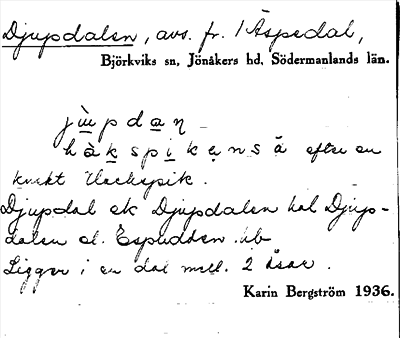 Djupdalen, avs. fr. 1 Äspedal,
Björkviks sn, Jönåkers hd, Södermanlands län.
jùpdaṇ
hàkspikens ä efter en
knekt Hackspik.
Djupdal ek Djupdalen hal Djup-
dalen el. Espudden. hb
Ligger i en dal mell. 2 åsar.
Karin Bergström 1936.